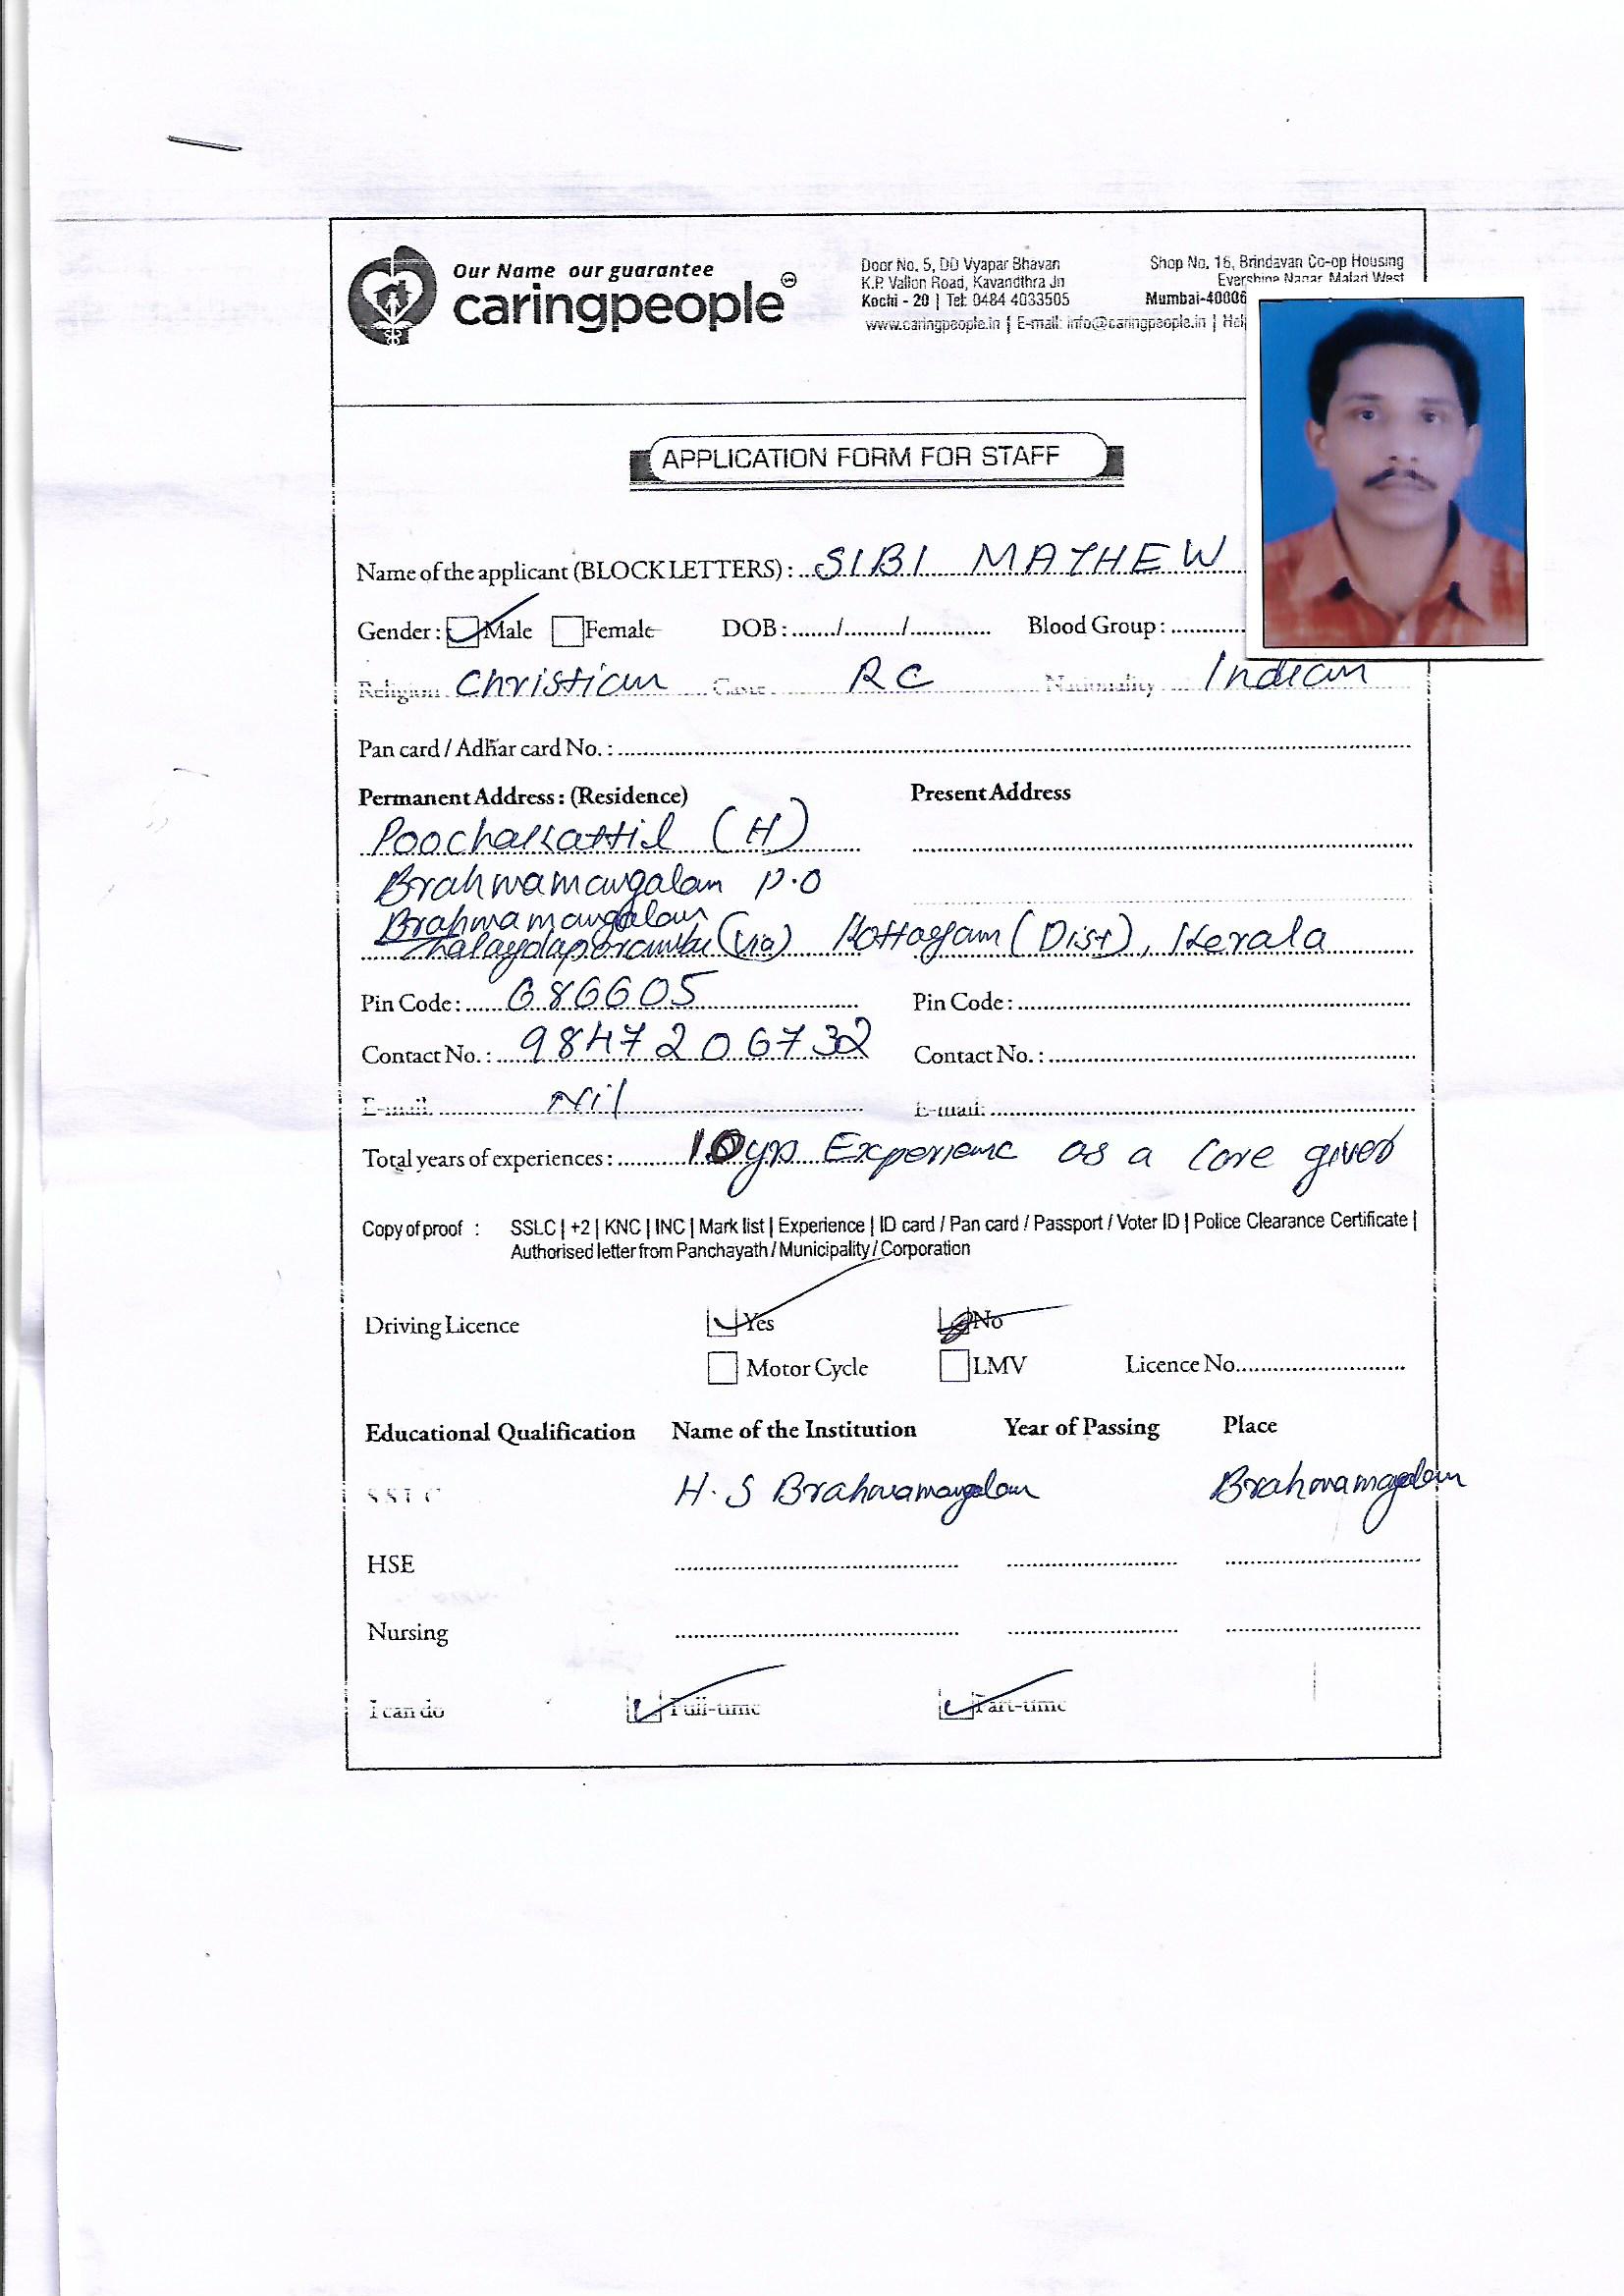 Our Name our guarantee
caringpeople
Door No. 5, DD Vyapar Bhavan
K.P. Vallon Road, Kavandthra Jn
Kochi - 20 | Tel: 0484 4033505
Shop No. 16, Brindavan Co-op Housing
Evershine Nagar, Malad West
Mumbai-40006
www.caringpeople.in | E-mail: info@caringpeople.in | Hel
APPLICATION FORM FOR STAFF
Name of the applicant (BLOCK LETTERS) : SIBI MATHEW
Gender : Male Female DOB : ......./........./............. Blood Group : ............
Religion Christian Caste RC Nationality Indian
Pan card / Adhar card No. :
Permanent Address : (Residence) Present Address
Poochakattil (H)
Brahmamangalam P.O
Brahmamangalam
Thalayolaparambu (Via) Kottayam (Dist), Kerala
Pin Code : 686605 Pin Code :
Contact No. : 9847206732 Contact No. :
E-mail Nil E-mail:
Total years of experiences : 10 yrs Experience as a Care giver
Copy of proof : SSLC | +2 | KNC | INC | Mark list | Experience | ID card / Pan card / Passport / Voter ID | Police Clearance Certificate |
Authorised letter from Panchayath / Municipality / Corporation
Driving Licence Yes No
Motor Cycle LMV Licence No.
Educational Qualification Name of the Institution Year of Passing Place
SSLC H.S Brahmamangalam Brahmamagalam
HSE
Nursing
I can do Full-time Part-time